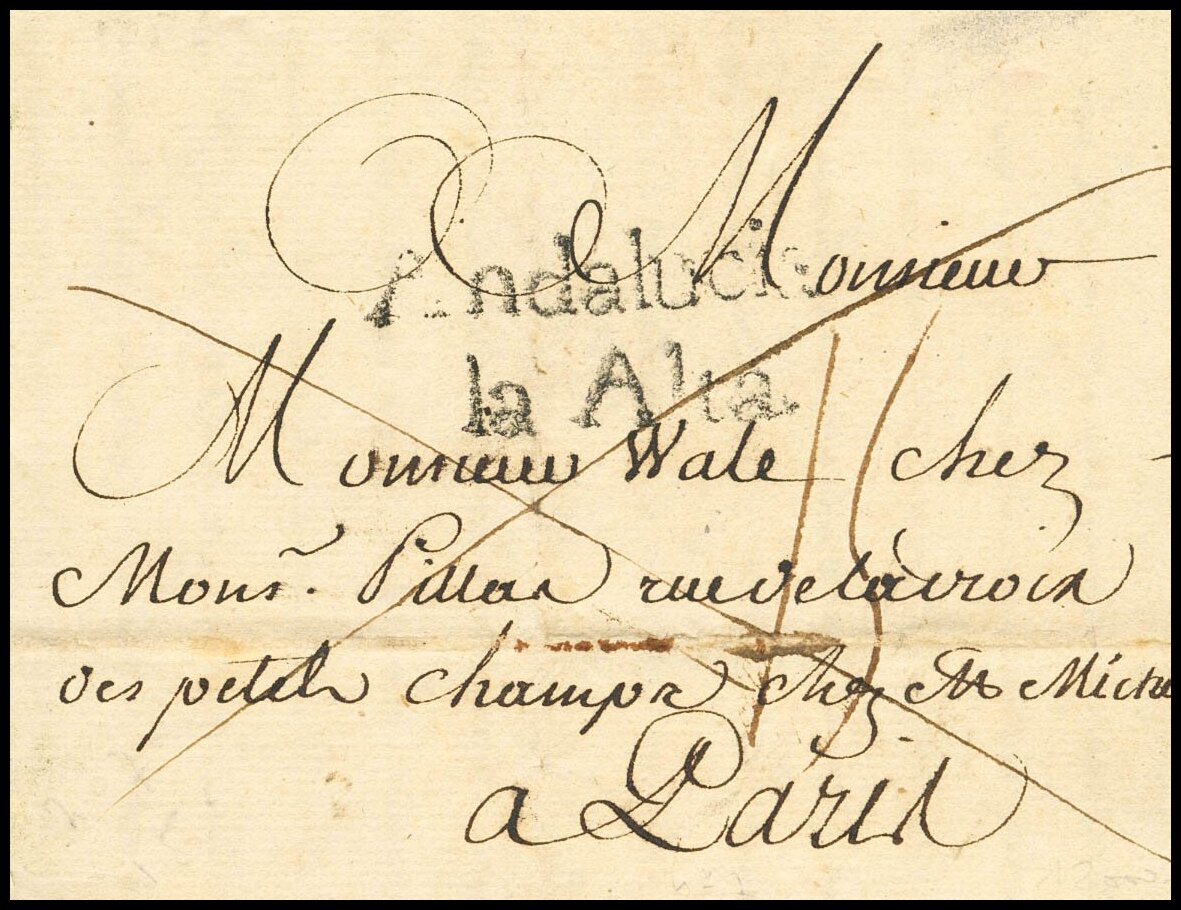 A Monsieur
Andalucia
la Alta
Monsieur Wale chez
Monsr. Pillas rue de la croix
des petits champs chez Mr Miche
a Paris
15